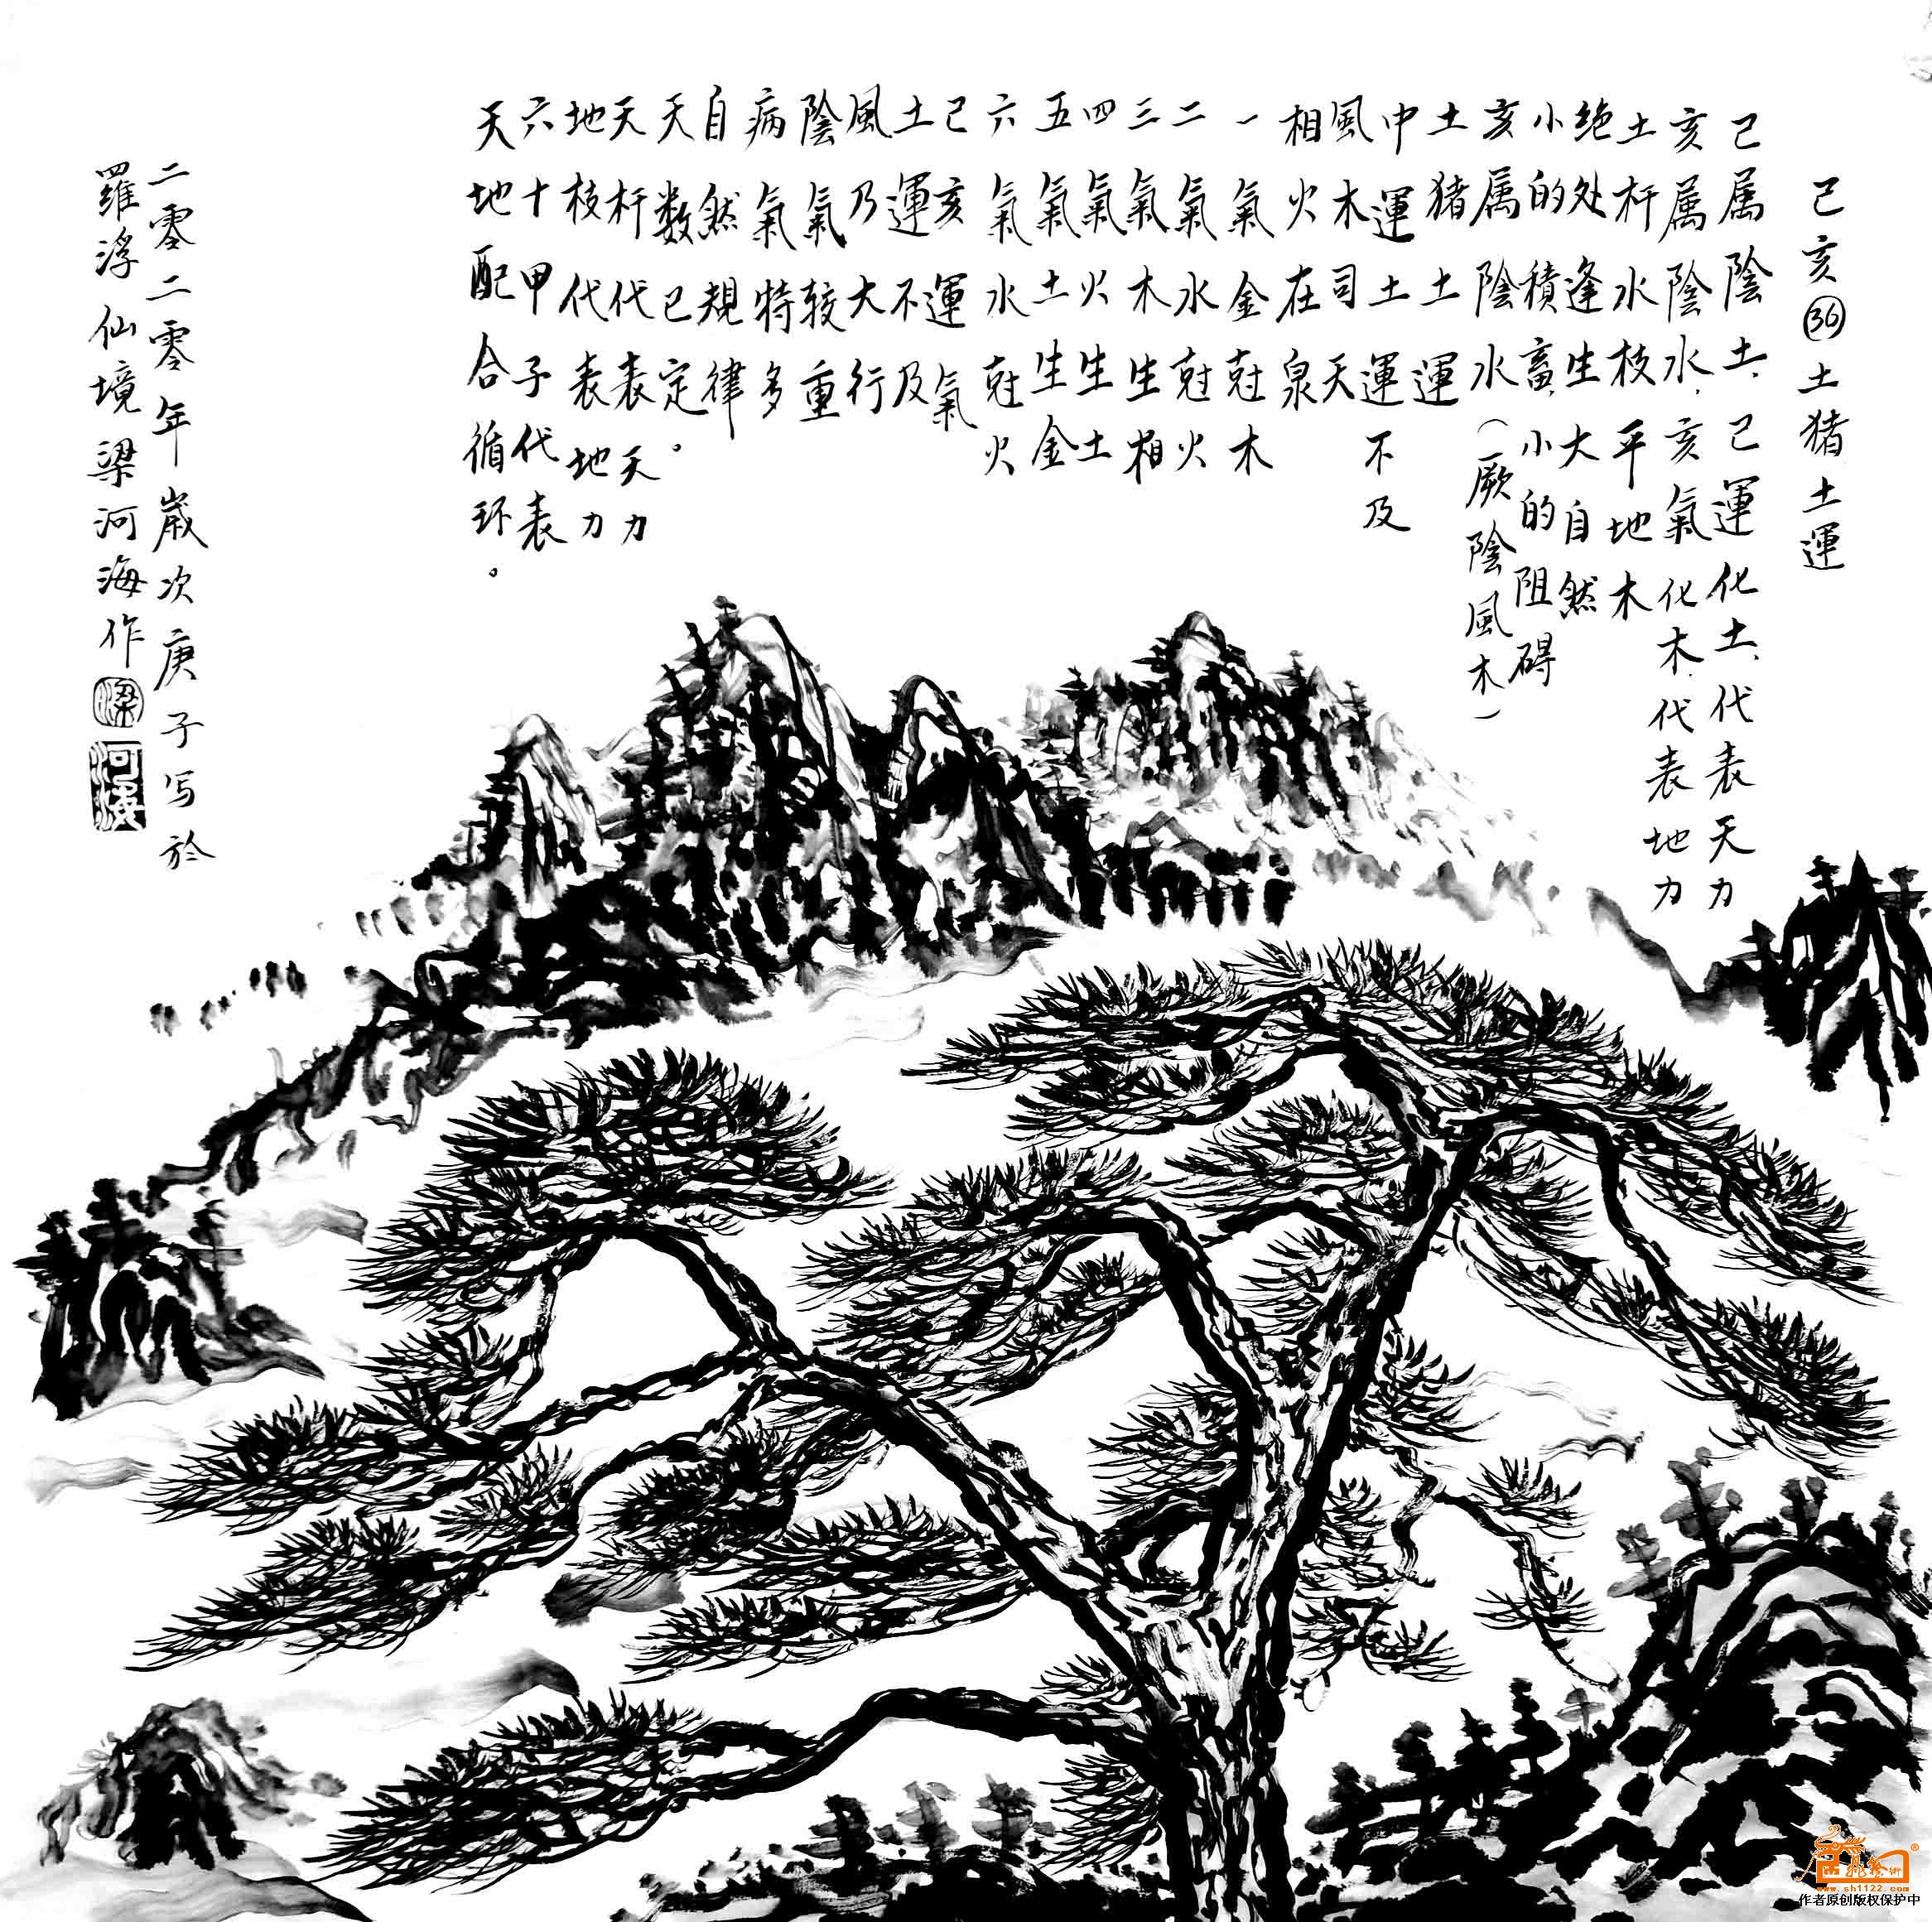 己亥㊱土猪土運
己属陰土，己運化土，代表天力
亥属陰水，亥氣化木，代表地力
土杆水枝平地木
绝处逢生大自然
小的積畜，小的阻碍
亥属陰水（厥陰風木）
土猪土運
中運土運不及
風木司天
相火在泉
一氣金尅木
二氣水尅火
三氣木生相
四氣火生土
五氣土生金
六氣水尅火
己亥運氣
土運不及
風乃大行
陰氣較重
病氣特多
自然規律
天数已定。
天杆代表天力
地枝代表地力
六十甲子代表
天地配合循环。
二零二零年歲次庚子写於
羅浮仙境梁河海作
梁
河海
www.sh1122.com
作者原创版权保护中